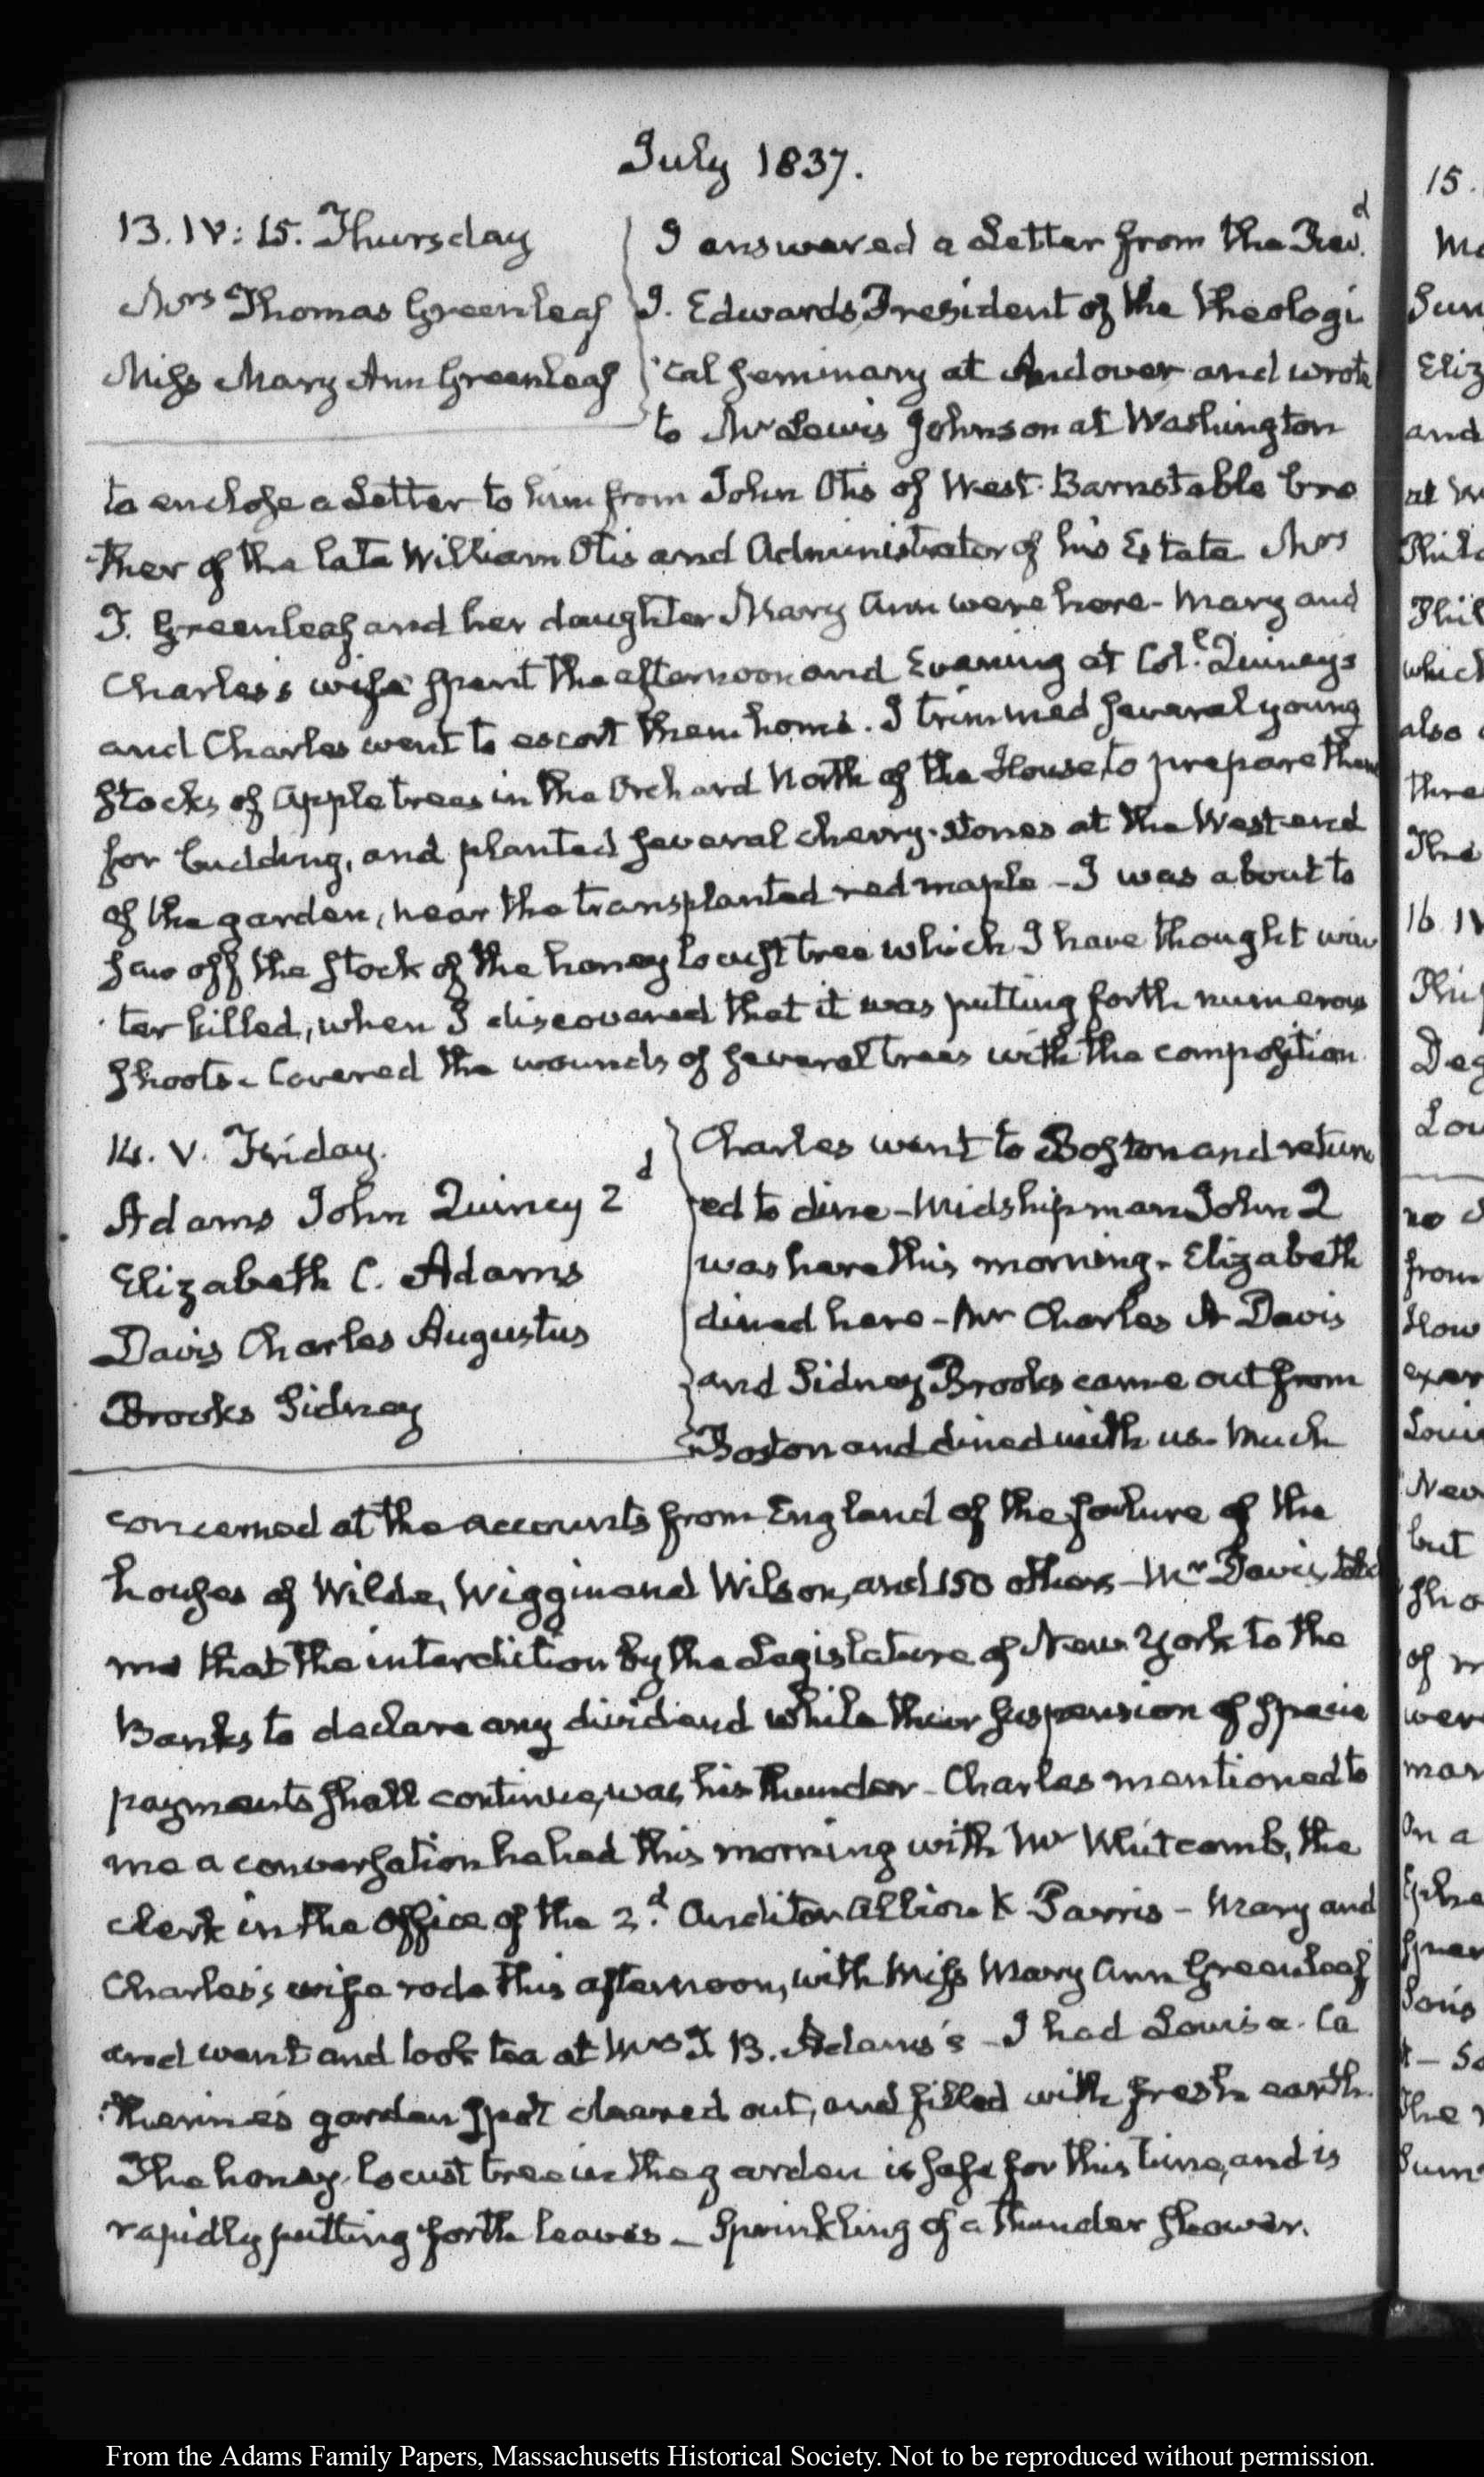 July 1837.
13. IV: 15. Thursday
Mrs Thomas Greenleaf
Miss Mary Ann Greenleaf
I answered a Letter from the Revd.
J. Edwards, President of the Theologi
cal Seminary at Andover and wrote
to Mr Lewis Johnson at Washington
to enclose a Letter to him from John Otis of West-Barnstable bro
ther of the late William Otis and Administrator of his Estate Mrs
T. Greenleaf and her daughter Mary Ann were here - Mary and
Charles's wife spent the afternoon and Evening at Col. Quincy's
and Charles went to escort them home. I trimmed several young
stocks of Apple trees in the Orchard North of the House, to prepare them
for budding, and planted several cherry-stones at the West-end
of the garden, near the transplanted red maple - I was about to
saw off the stock of the honey locust tree which I have thought win
ter killed, when I discovered that it was putting forth numerous
shoots - Covered the wounds of several trees with the composition.
14. V. Friday.
Adams John Quincy 2d
Elizabeth C. Adams
Davis Charles Augustus
Brooks Sidney
Charles went to Boston and return
ed to dine - Midshipman John Q
was here this morning - Elizabeth
dined here - Mr Charles A Davis
and Sidney Brooks came out from
Boston and dined with us - Much
concerned at the accounts from England of the failure of the
houses of Wilde, Wiggin and Wilson, and 150 others - Mr Davis told
me that the interdiction by the Legislature of New York to the
Banks to declare any dividend while their suspension of specie
payments shall continue, was his thunder - Charles mentioned to
me a conversation he had this morning with Mr Whitcomb, the
clerk in the Office of the 2d. Auditor Albion K Parris - Mary and
Charles's wife rode this afternoon, with Miss Mary Ann Greenleaf
and went and took tea at Mrs T. B. Adams's - I had Louisa Ca
therine's garden spot cleared out, and filled with fresh earth.
The honey-locust tree in the garden is safe for this time, and is
rapidly putting forth leaves - Sprinkling of a thunder shower.
15.
also
16 IV
from
but
of
On a
From the Adams Family Papers, Massachusetts Historical Society. Not to be reproduced without permission.